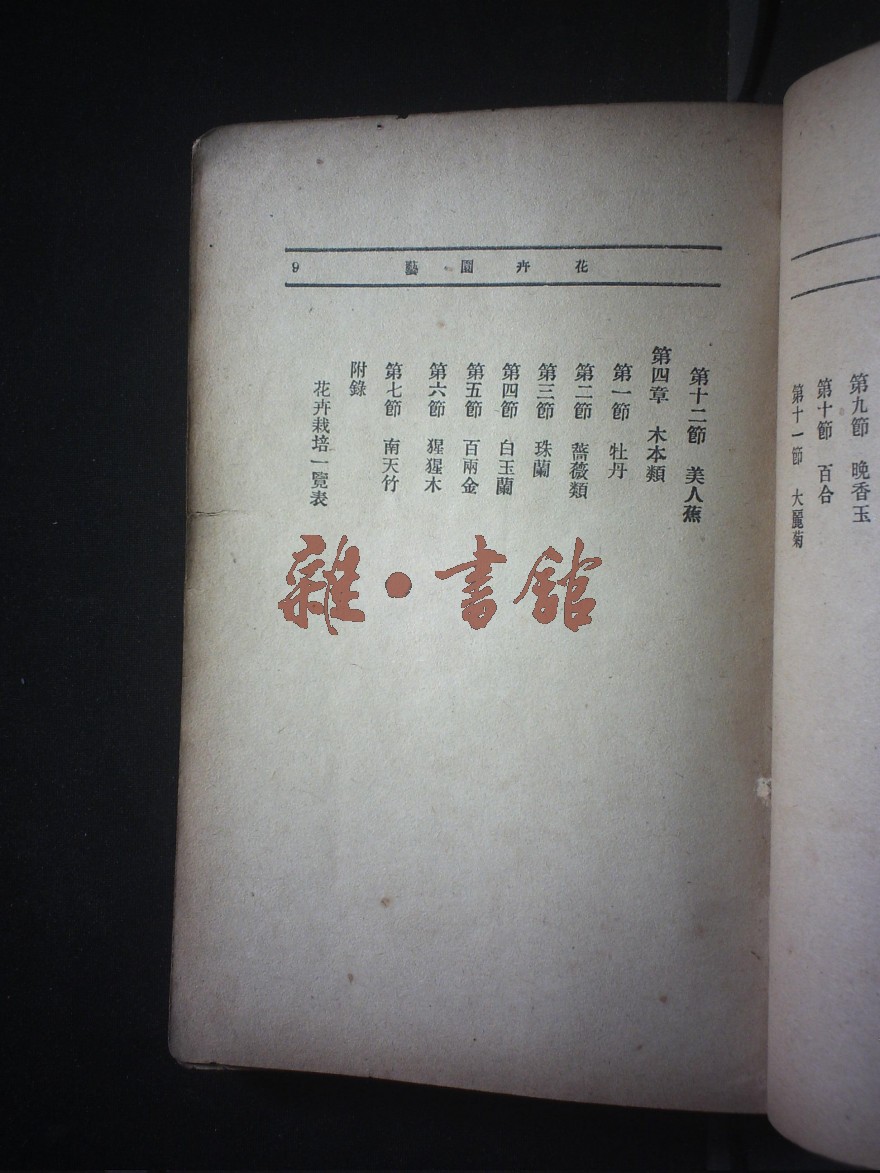 第九節　晚香玉
第十節　百合
第十一節　大麗菊
花卉園藝
9
第十二節　美人蕉
第四章　木本類
第一節　牡丹
第二節　薔薇類
第三節　珠蘭
第四節　白玉蘭
第五節　百兩金
第六節　猩猩木
第七節　南天竹
附錄
花卉栽培一覽表
雜·書館